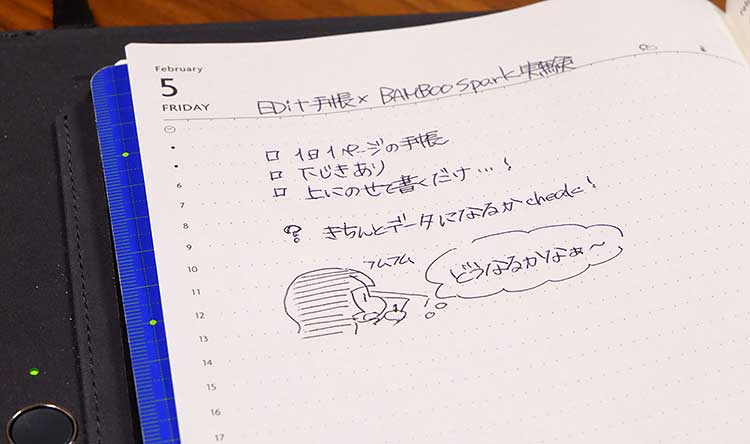 February
5
FRIDAY
EDiT手帳 × BAMBOO Spark 実験
□ 1日1ページの手帳
□ 下じきあり
□ 上にのせて書くだけ…!
? きちんとデータになるか check!
フムフム
どうなるかなぁ〜
6
7
8
9
10
11
12
13
14
15
16
17